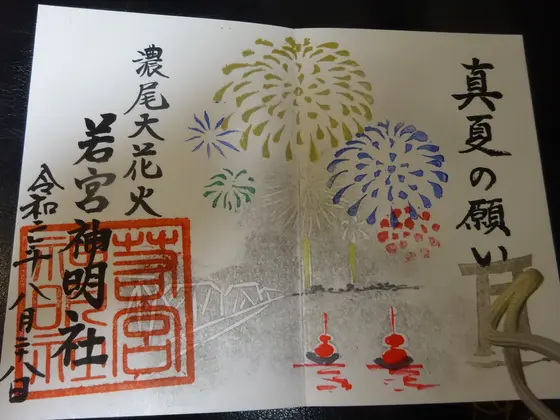 真夏の願い
濃尾大花火
若宮神明社
令和二年八月二八日